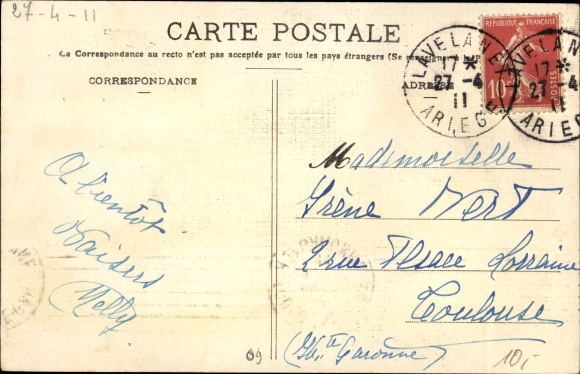 27-4-11
CARTE POSTALE
La Correspondance au recto n'est pas acceptée par tous les pays étrangers (Se
CORRESPONDANCE
ADRESSE
REPUBLIQUE FRANÇAISE
POSTES
10
LAVELANET
17*
27-4
11
ARIEGE
LAVELANET
17*
27-4
11
ARIEGE
A bientôt
Baisers
Nelly
Mademoiselle
Irène Vert
2 rue Alsace Lorraine
Toulouse
(Hte Garonne)
09
10,-